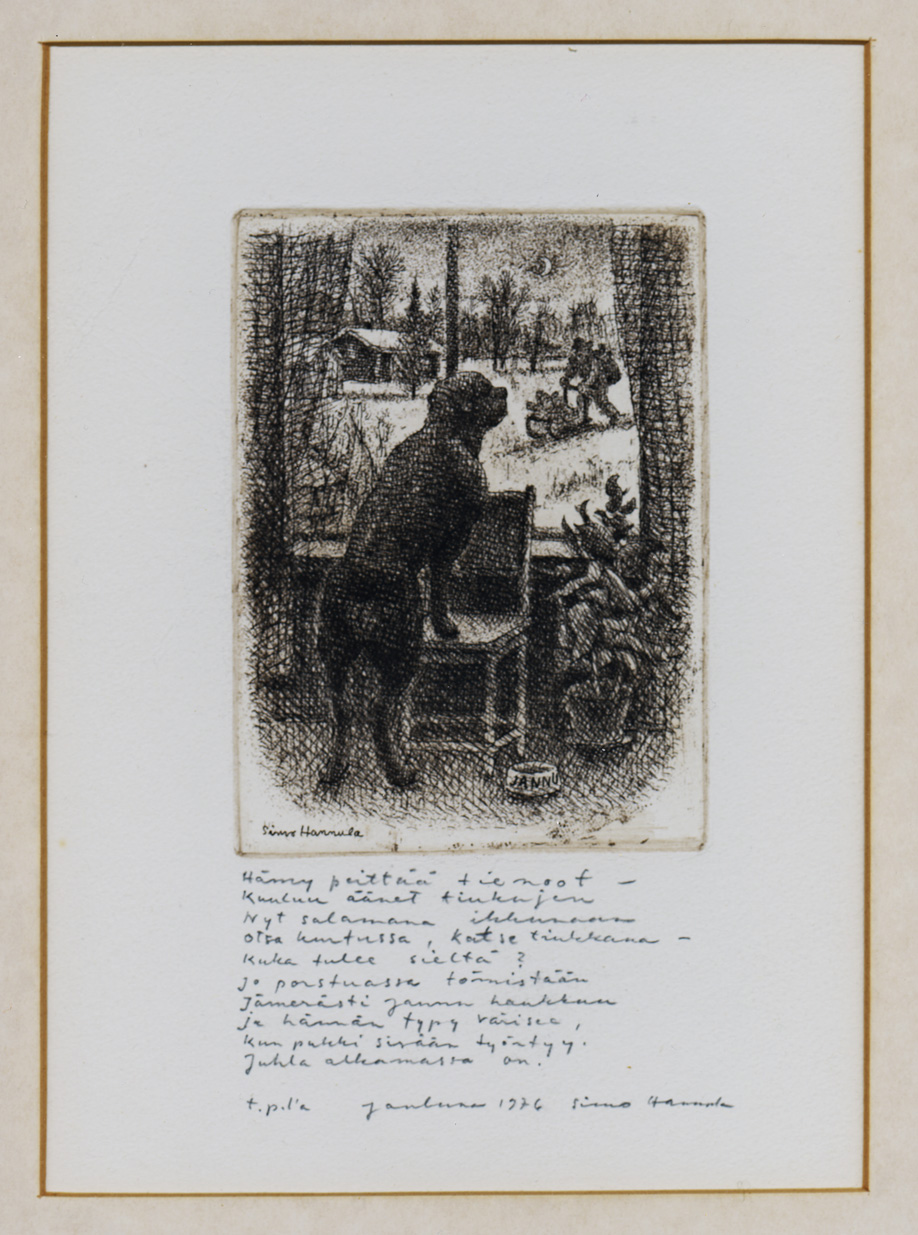 JANNU
Simo Hannula
Hämy peittää tienoot –
Kuuluu äänet tiukujen
Nyt salamana ikkunaan
otsa kurtussa, katse tiukkana –
Kuka tulee sieltä?
jo porstuassa tömistään
Jämerästi Jannu haukkuu
ja hännän typy värisee,
kun pukki sisään työntyy.
Juhla alkamassa on!
t.p.l'a jouluna 1976 Simo Hannula